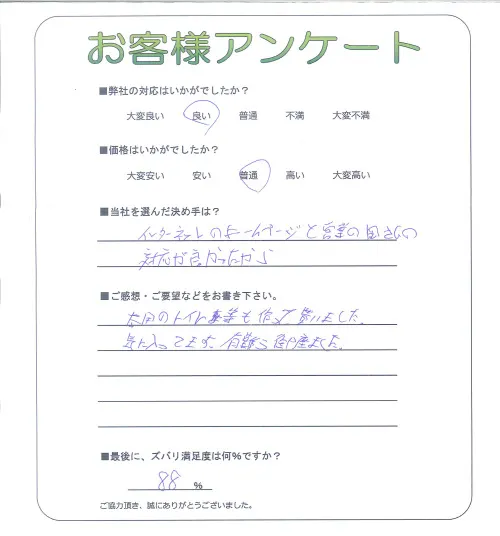 お客様アンケート
■弊社の対応はいかがでしたか？
大変良い 良い 普通 不満 大変不満
■価格はいかがでしたか？
大変安い 安い 普通 高い 大変高い
■当社を選んだ決め手は？
インターネットのホームページと営業の
対応が良かったから
■ご感想・ご要望などをお書き下さい。
のトイレ も作って貰いました。
気に入ってます。有難う御座いました。
■最後に、ズバリ満足度は何%ですか？
88 %
ご協力頂き、誠にありがとうございました。